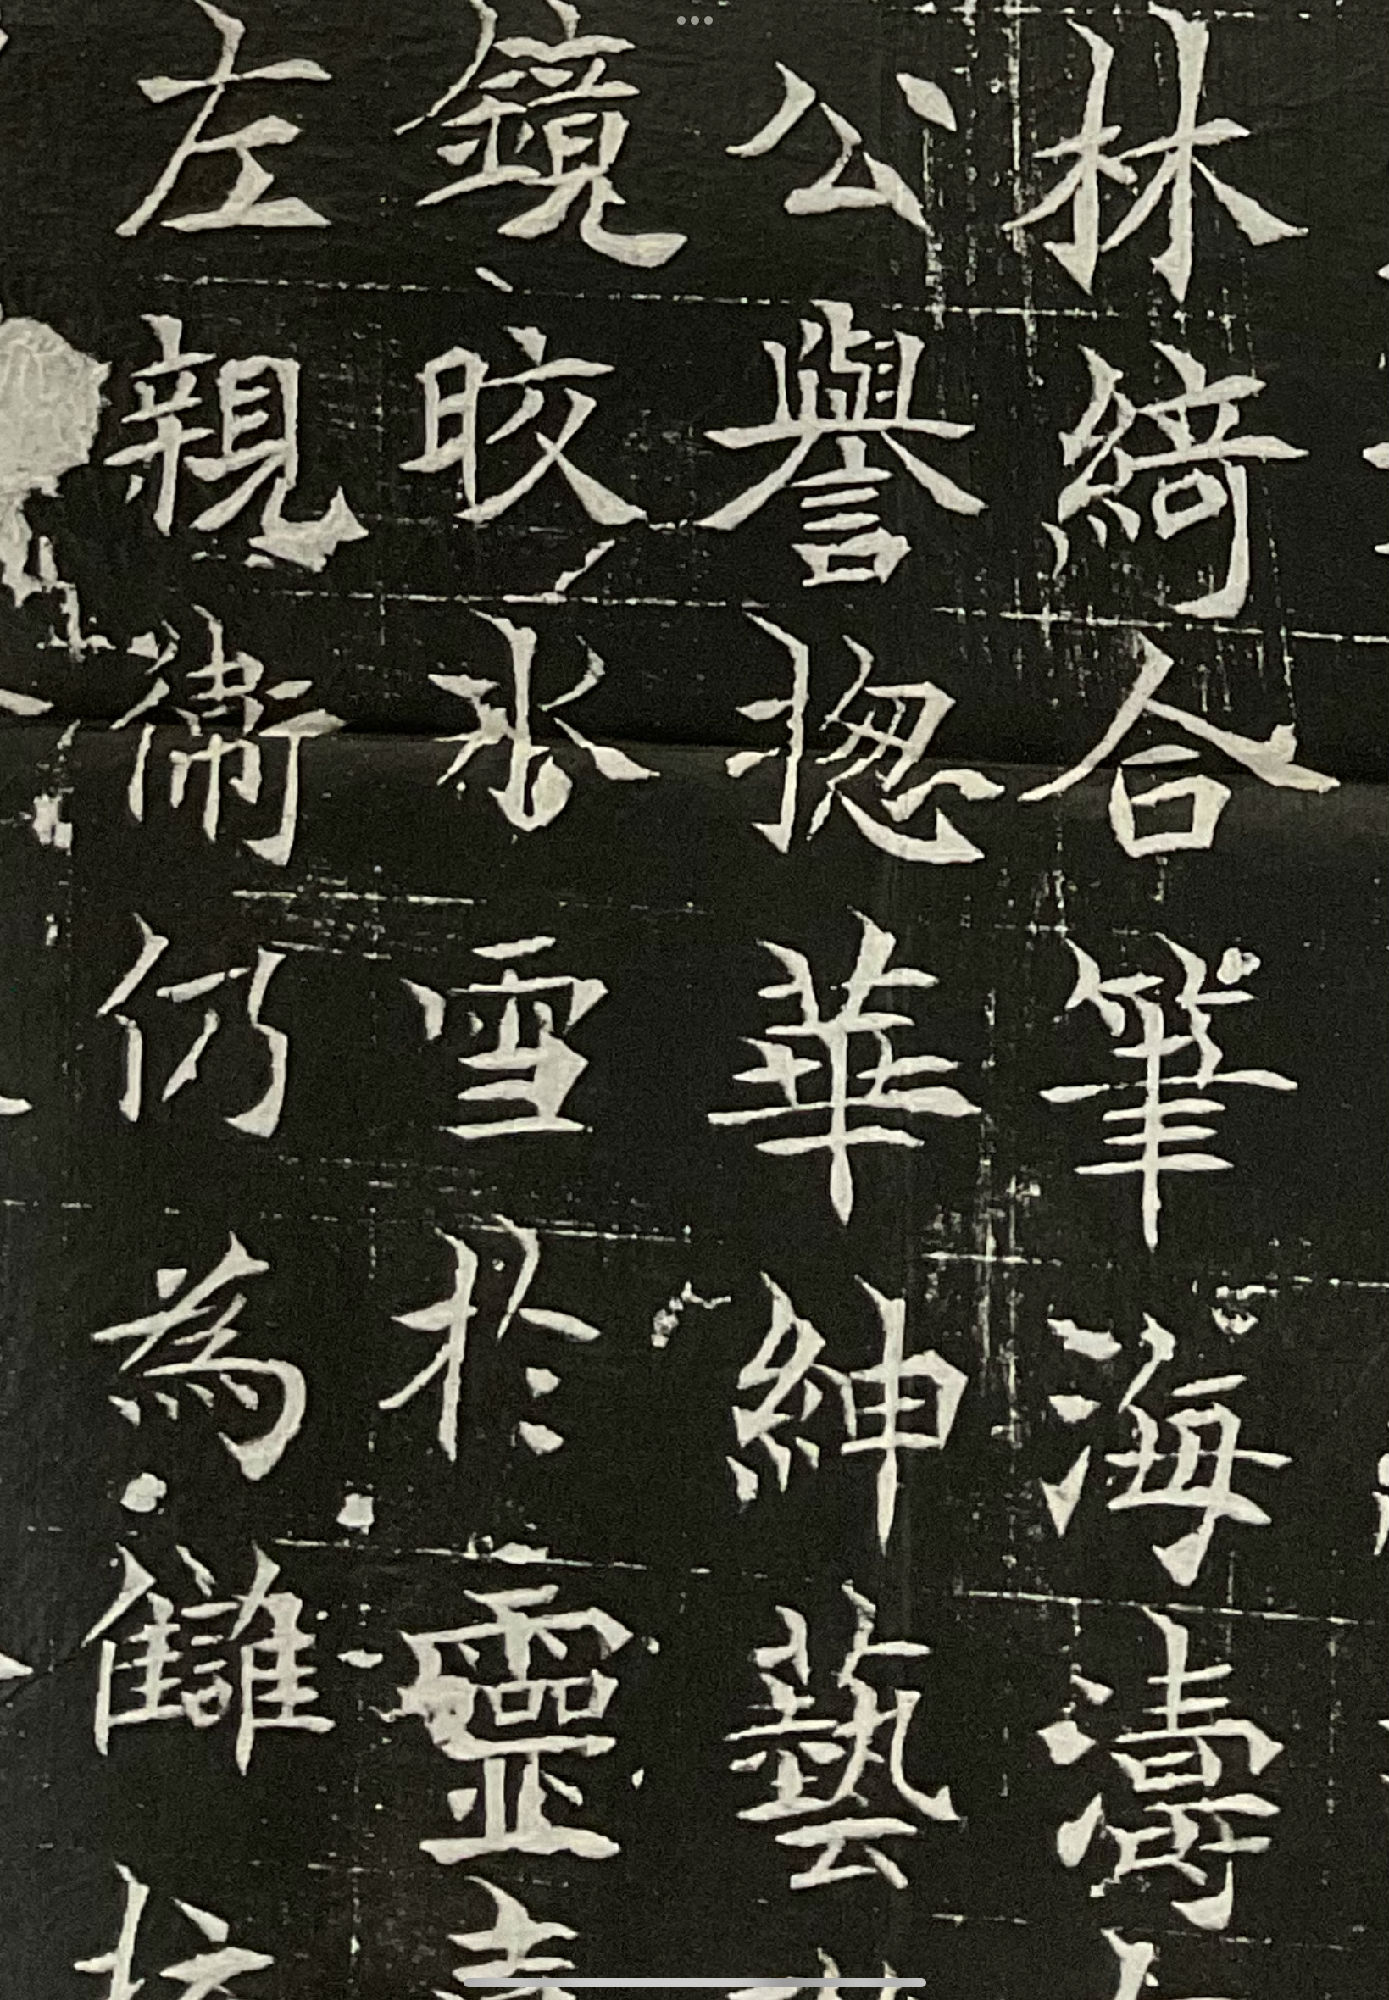 林綺合筆海濤
公譽揔華紳藝
鏡皎冰雪於靈
左親衛仍為讎